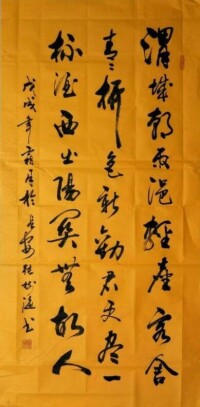 渭城朝雨浥轻尘客舍
青青柳色新劝君更尽一
杯酒西出阳关无故人
戊戌年霜月於长安张书